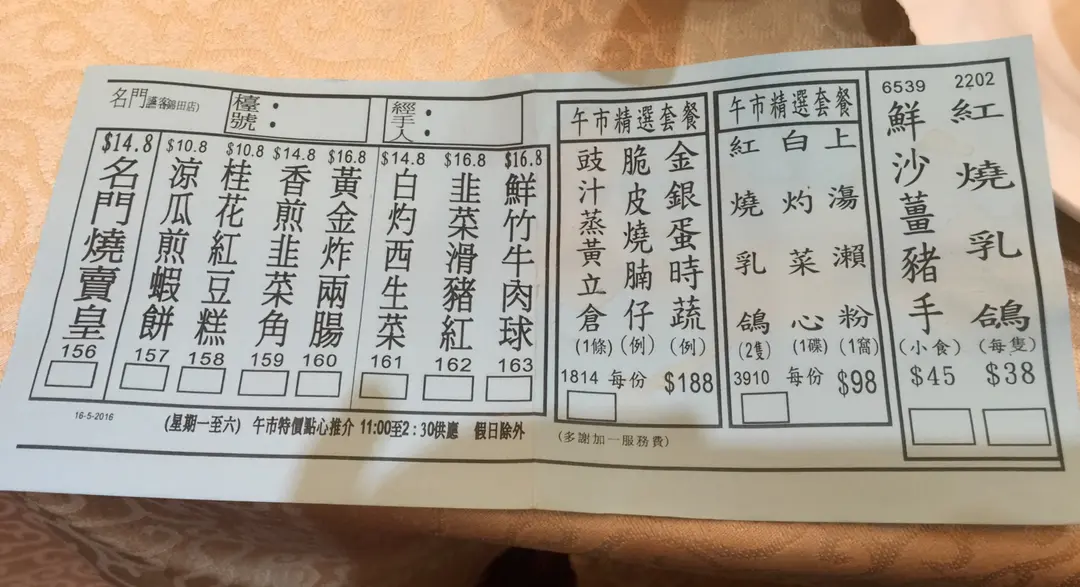 名門(讌客錦田店)
檯號：
經手人：
$14.8 名門燒賣皇 156
$10.8 涼瓜煎蝦餅 157
$10.8 桂花紅豆糕 158
$14.8 香煎韭菜角 159
$16.8 黃金炸兩腸 160
$14.8 白灼西生菜 161
$16.8 韭菜滑豬紅 162
$16.8 鮮竹牛肉球 163
16-5-2016
(星期一至六) 午市特價點心推介 11:00至2:30供應 假日除外
午市精選套餐
金銀蛋時蔬(例)
脆皮燒腩仔(例)
豉汁蒸黃立倉(1條)
1814 每份 $188
午市精選套餐
上湯瀨粉(1窩)
白灼菜心(1碟)
紅燒乳鴿(2隻)
3910 每份 $98
(多謝加一服務費)
2202 紅燒乳鴿(每隻) $38
6539 鮮沙薑豬手(小食) $45